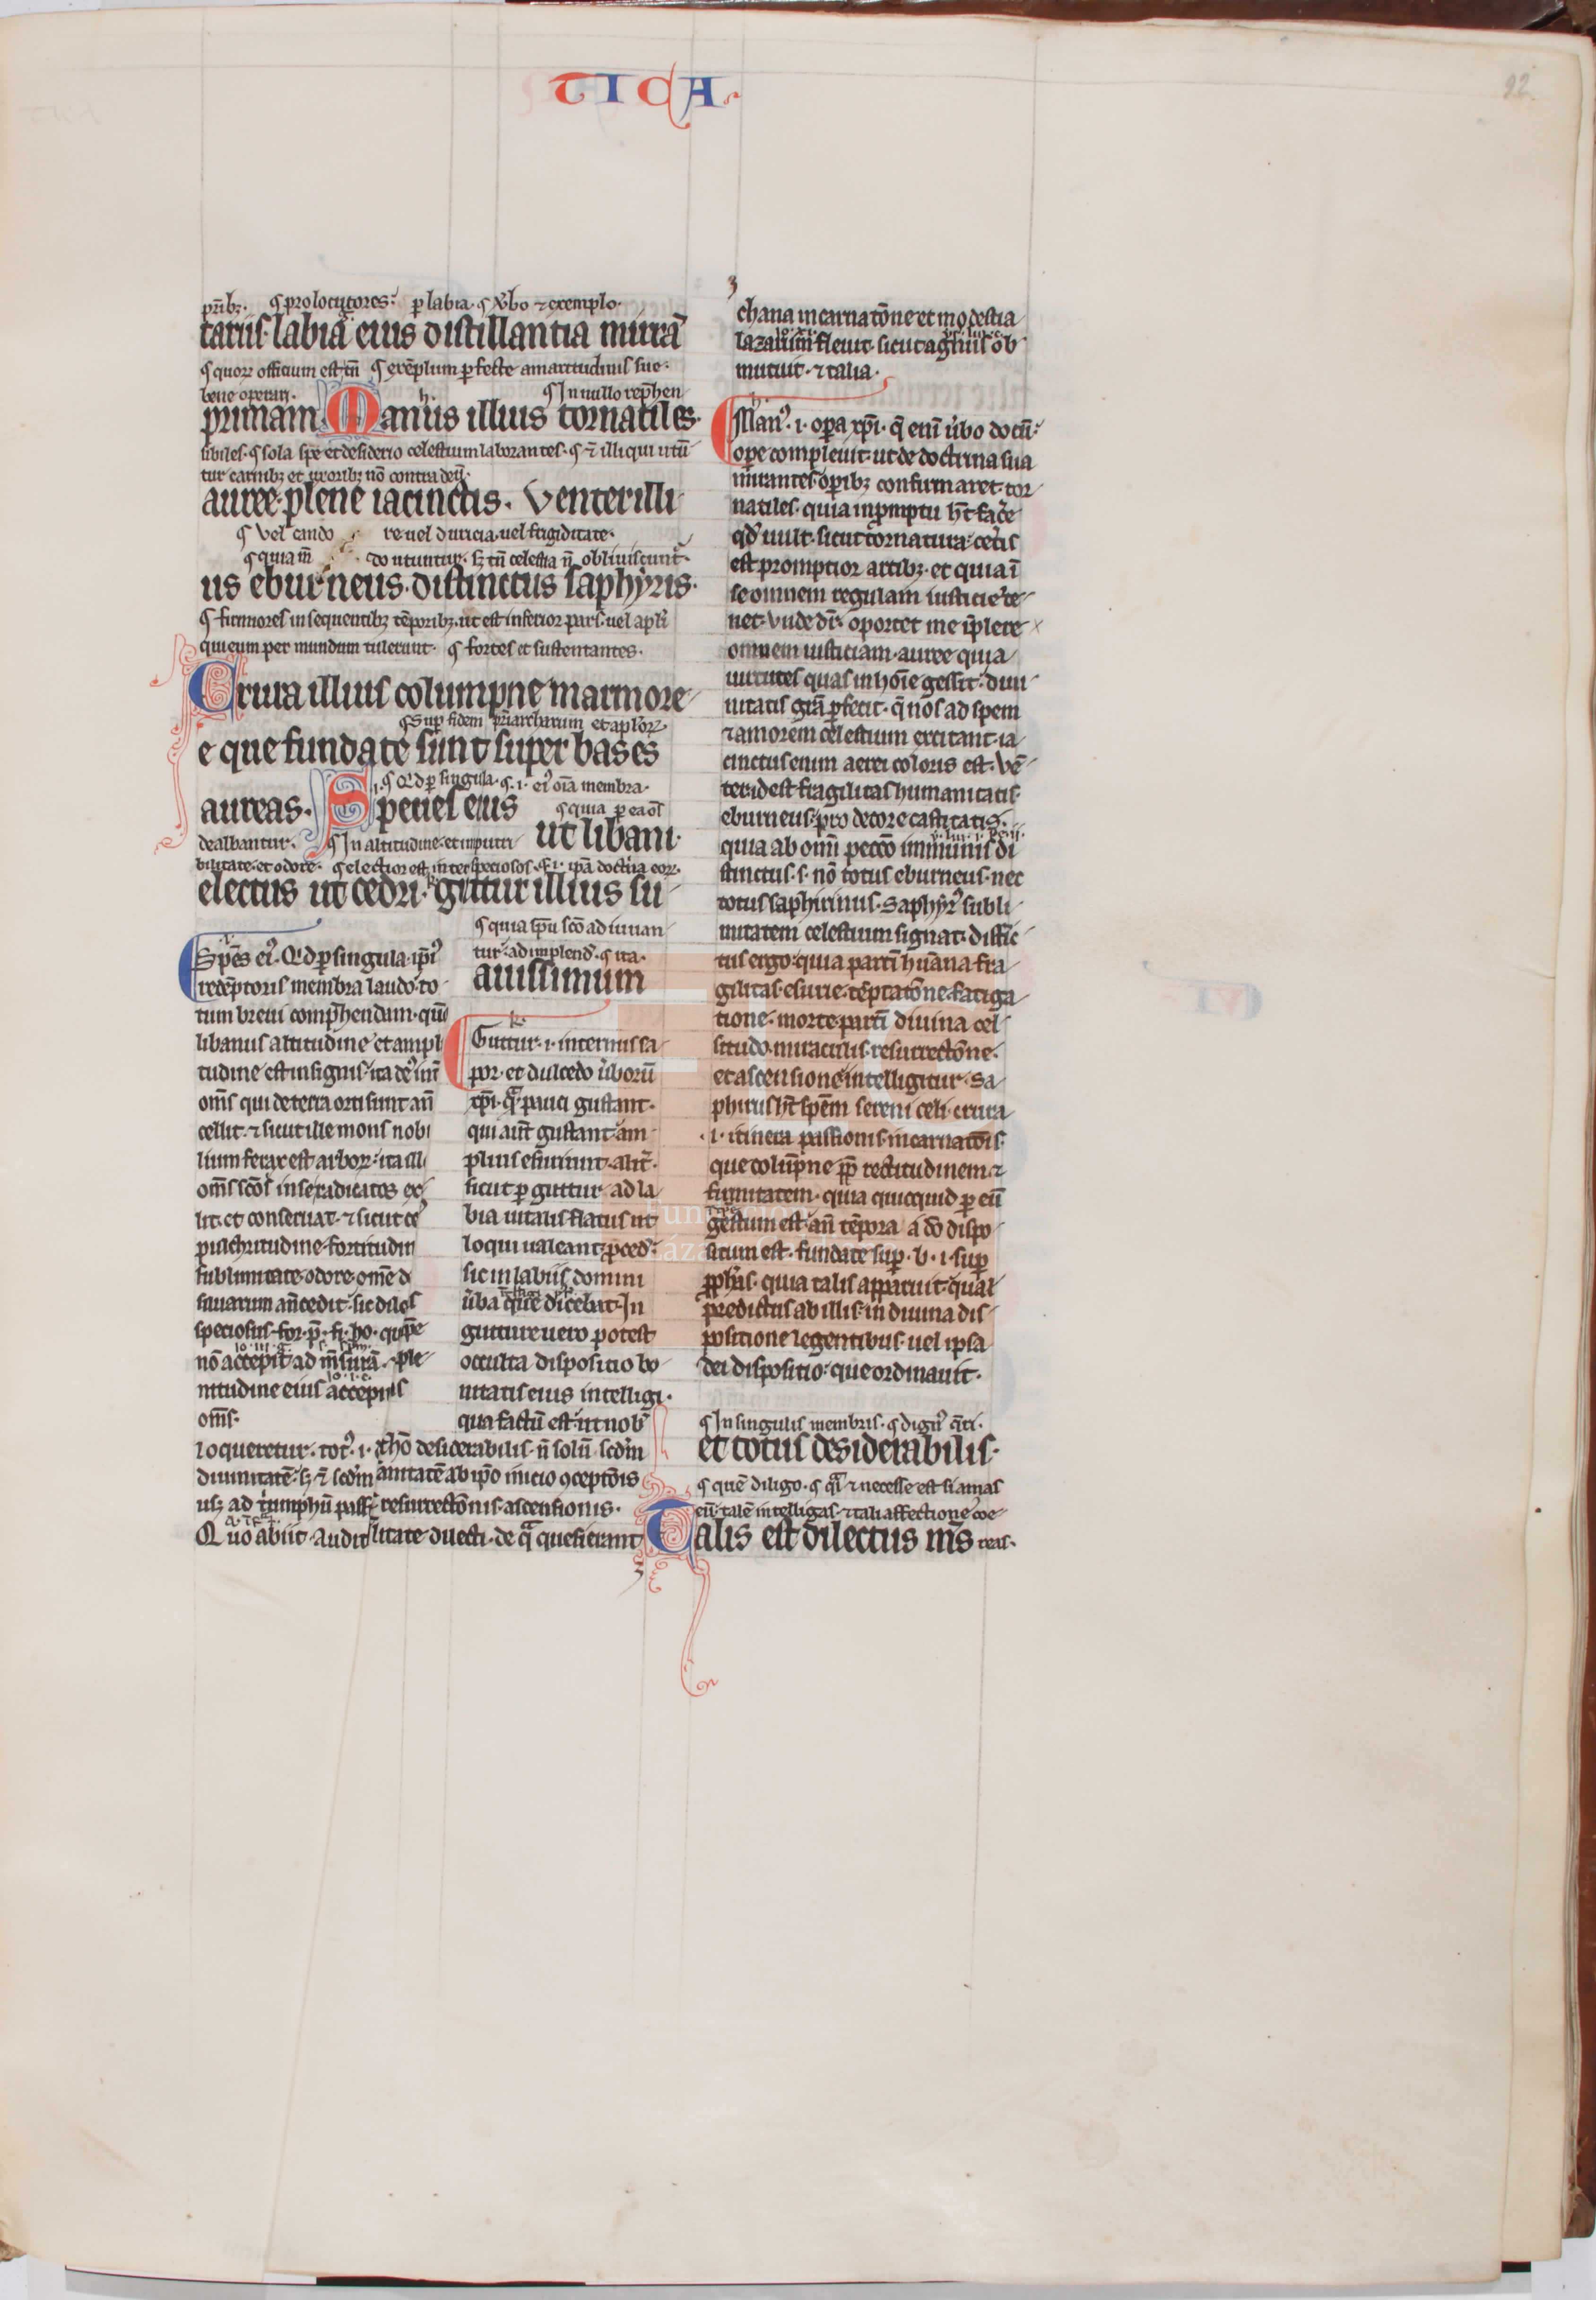 TICA
92
prībꝫ. ¶ prolocutores. p labia. ¶ v̾bo ⁊ exemplo.
tariis labia eius distillantia mirrā
¶ quorꝝ officium est tm̄ ¶ exēplum ꝑfecte amaritudinis sue.
bene operari. ¶ In nullo rep̄hen
primam. Manus illius tornatiles.
sibiles. ¶ sola spe et desiderio celestium laborantes. ¶ ⁊ illi qui utū
tur carnibꝫ et uxoribꝫ nō contra deū.
auree. plene iacinctis. Venter illi
¶ vel cando re uel duricia uel frigiditate.
¶ quia m̄ do utuntur. sꝫ tn̄ celestia n̄ obliuiscunt.
us eburneus. distinctus saphyris.
¶ firmiores in sequentibꝫ tēporibꝫ. ut est inferior pars. uel apl̄i
qui eum per mundum tulerunt. ¶ fortes et sustentantes.
Crura illius columpne marmore
¶ Sup fidem pr̄iarcharum et aplorꝝ.
e que fundate sunt super bases
¶ Qd ꝑ singula. ¶ .i. eiꝰ oīa membra.
aureas. Species eius ¶ quia ꝑ ea oēs
ut libani
dealbantur. ¶ In altitudine et imputri
bilitate et odore. ¶ electior est inter speciosos. ¶ .i. ipā doctrīa eorꝝ.
electus ut cedri. guttur illius su
¶ quia sp̄u sc̄o adiuuan
tur. ad implend. ¶ ita.
auissimum
.i.
Spēs eiꝰ. Qd ꝑ singula ip̄iꝰ
redēptoris membra laudo. to
tum breui comp̄hendam. qm̄
libanus altitudine et ampl
tudine est insignis. ita dꝰ int̄
om̄s qui de terra orti sunt an̄
cellit. ⁊ sicut ille mons nobi
lium ferax est arborꝝ. ita ill
om̄s scōs in se radicatos ex
lit. et conseruat. ⁊ sicut ce
pulchritudine. fortitudin
sublimitate. odore. om̄e d
siluarum an̄cedit. sic dil̄cs
speciosus. for. p̄. fi. ho. quippe
nō accepit ad mēsurā. ple
nitudine eius accepimus
om̄s.
k.
Guttur. .i. internus sa
por. et dulcedo v̾borū
xp̄i. qā pauci gustant.
qui aūt gustant am
plius esuriunt. alit̾.
sicut ꝑ guttur ad la
bia uitalis flatus ut
loqui ualeant. ꝓced̾.
sic in labiis domini
v̾ba que dicebat. In
gutture uero potest
occulta dispositio bo
nitatis eius intelligi.
qua factū est. ut nob̾
loqueretur. totꝰ. .i. xhō desiderabilis. n̄ solū scdm
diuinitatē. sꝫ ⁊ scdm anitatē ab ipō inicio ꝯceptōis
usꝫ ad triumphū pass̄. resurrectōnis. ascensionis.
Quo abiit. audit litate duecti. de qā quesierant
chana incarnatōne et modestia
lazarum fleuit. sicut agnus ob
mutuit. ⁊ talia.
h.
Manꝰ. .i. opera xp̄i. q̄ eni v̾bo docū
ope compleuit. ut de doctrina sua
mirantes. oꝑibꝫ confirmaret. tor
natiles. quia in promptu h̄t face
qd uult. sicut tornatura cet̾is
est promptior artibꝫ. et quia ī
se omnem regulam iusticie te
net. vnde dr̄. oportet me īplere
omnem iusticiam. auree quia
uirtutes quas in hōie gessit. diui
nitatis gr̄a ꝑfecit. q̄ nos ad spem
⁊ amorem celestium excitant. ia
cinctus enim aerei coloris est. vē
ter id est fragilitas humanitatis.
eburneus. pro decore castitatis.
quia ab omī peccō immunis di
stinctus. s. nō totus eburneus. nec
totus saphirinus. Saphyrꝰ subli
mitatem celestium signat. distīc
tus ergo. quia partī hūana fra
gilitas. esurie. tēptatōne. fatiga
tione. morte. partī diuina cel
situdo. miraculis. resurrectōne.
et ascensione intelligitur. Sa
phirus h̄t spēm sereni celi. crura
.i. itinera passionis. incarnatōis.
que colūpne ꝓp̄ rectitudinem ⁊
firmitatem. quia quicquid ꝑ eū
gestum est. an̄ tēpora a dō dispo
situm est. fundate suꝑ. b. .i. suꝑ
ꝓph̄as. quia talis apparuit. qual̾
predictus ab illis. in diuina dis
positione legentibus. uel ipsa
dei dispositio. que ordinauit.
¶ In singulis membris. ¶ dignꝰ q̄ri.
et totus desiderabilis.
¶ quē diligo. ¶ qā ⁊ necesse est si amas
eū. talē intelligas. ⁊ tali affectione coe
Talis est dilectus m̄s reas.